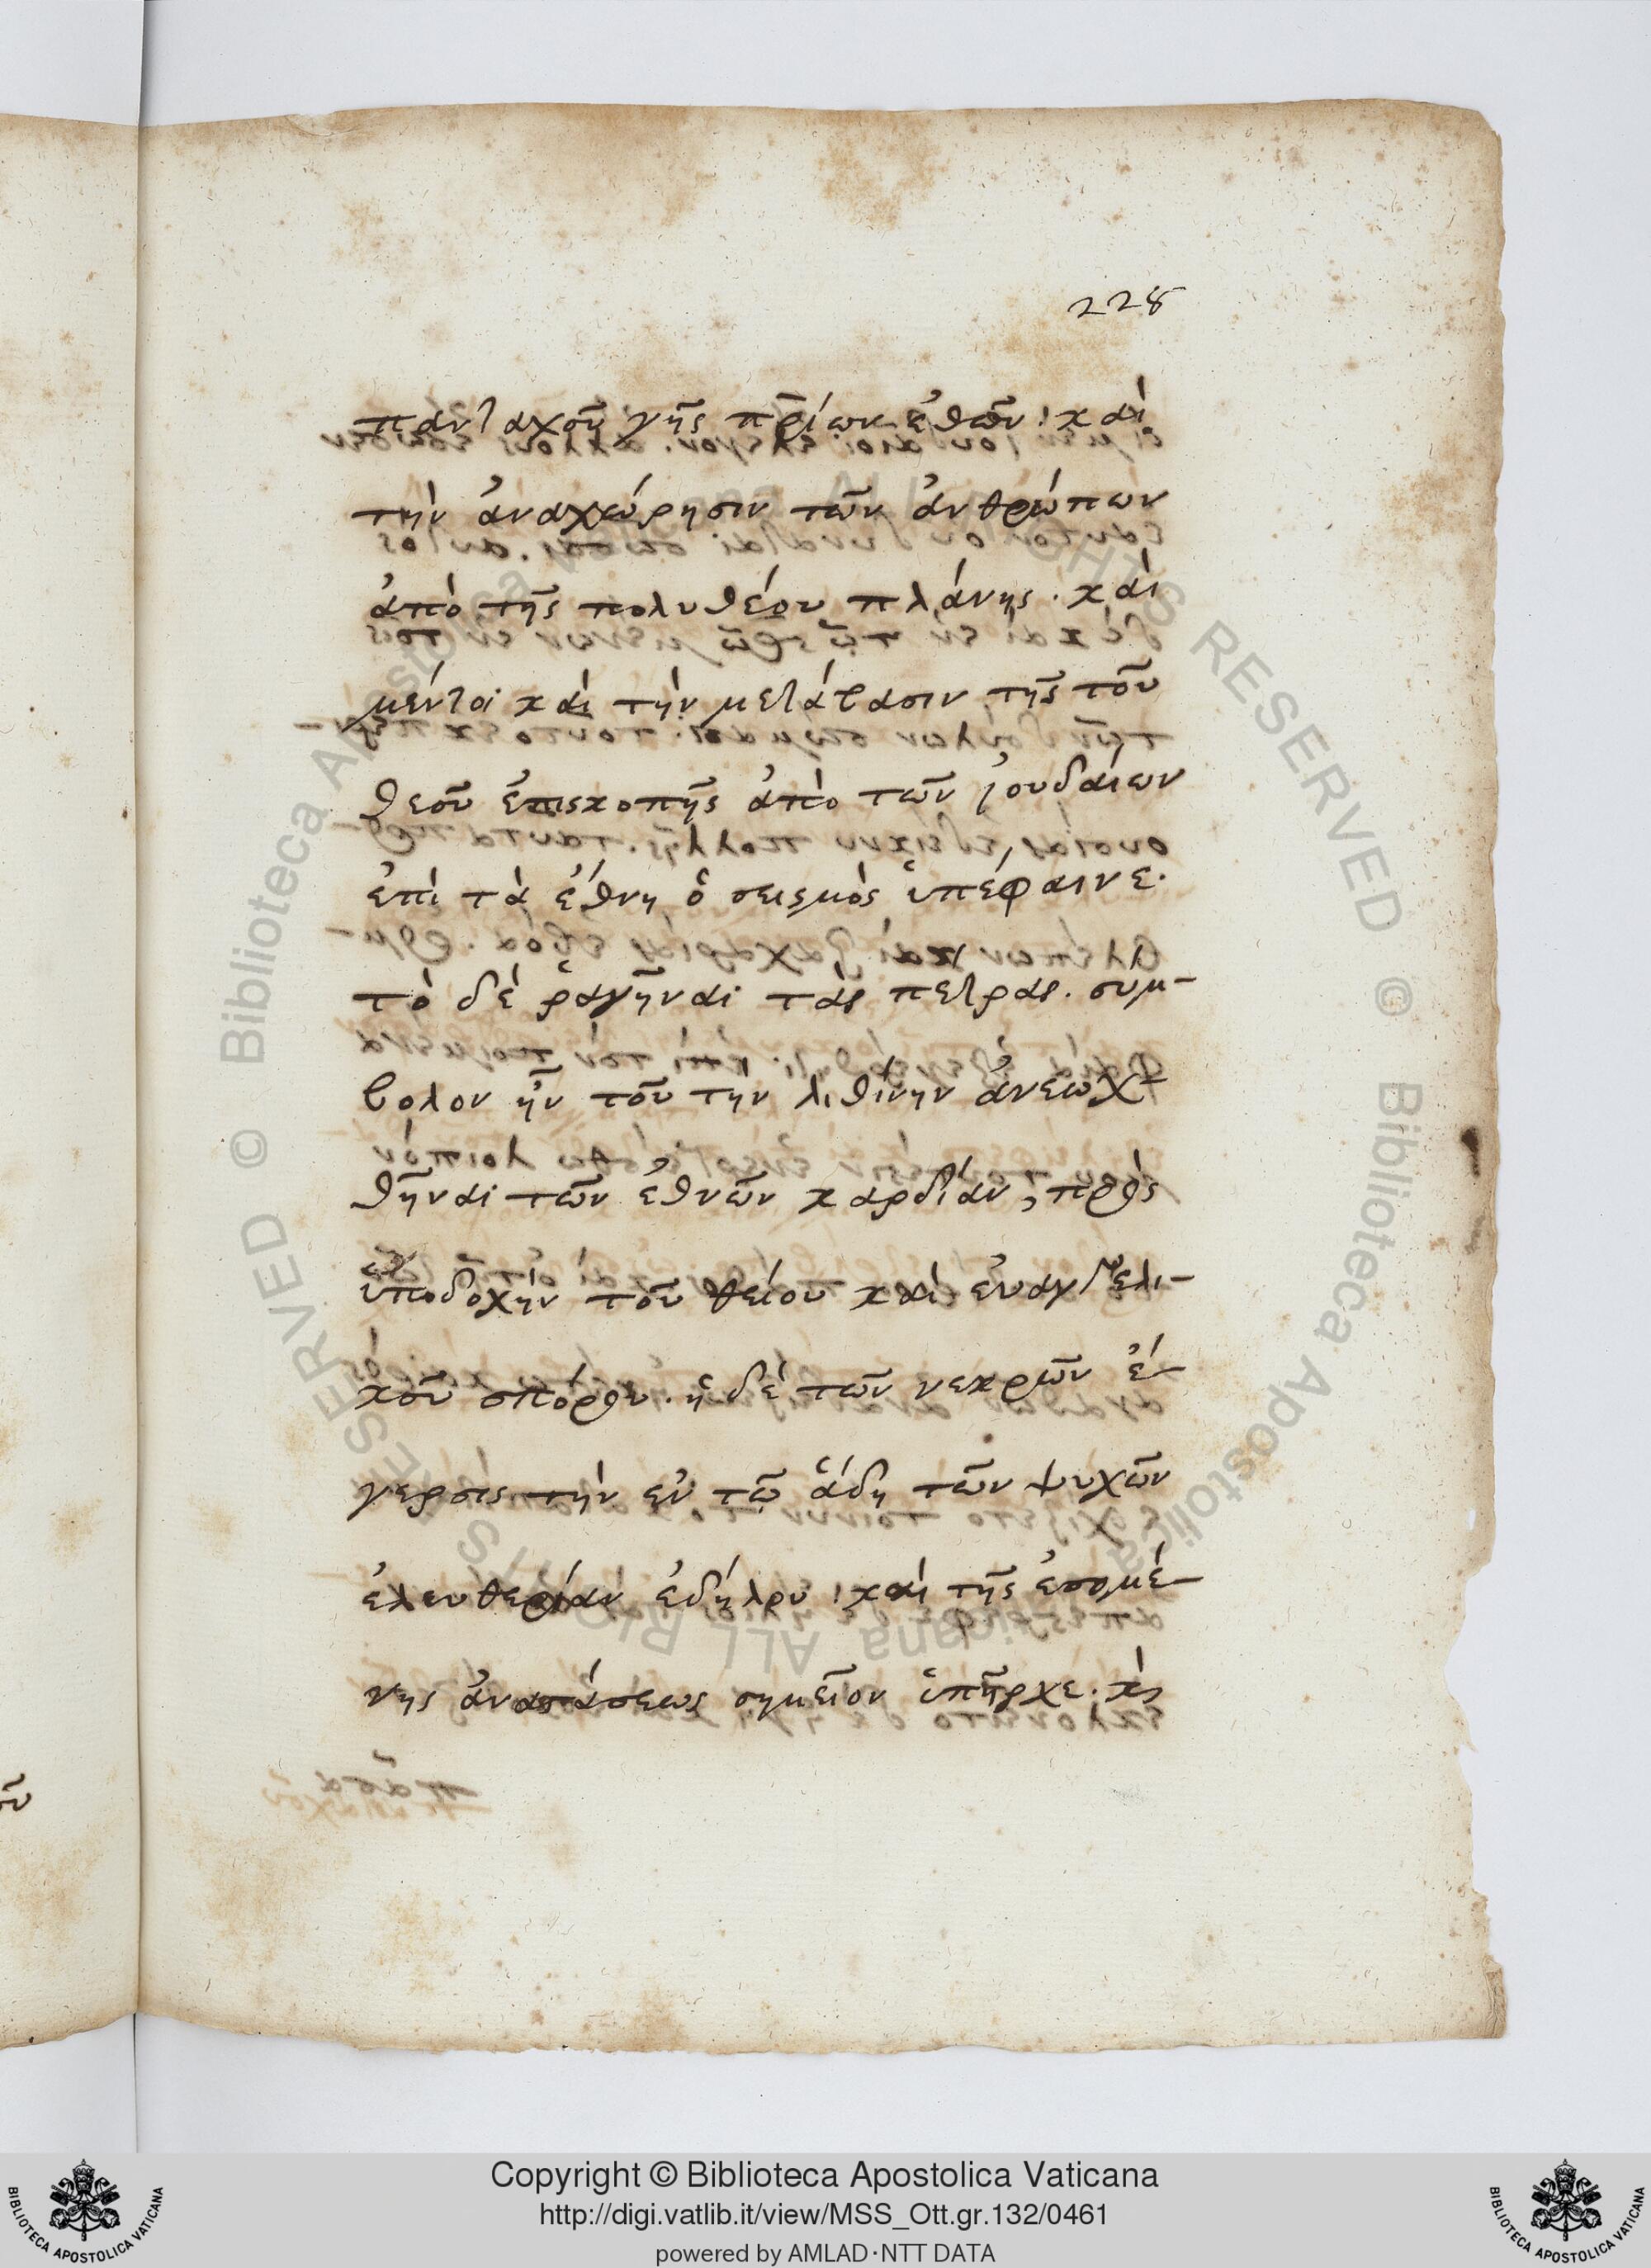 228
πανταχοῦ γῆς π̅ρ̅ίων ἐθῶν· καὶ
τὴν ἀναχώρησιν τῶν ἀνθρώπων
ἀπὸ τῆς πολυθέου πλάνης. καὶ
μέντοι καὶ τὴν μετάστασιν τῆς τοῦ
θεοῦ ἐπισκοπῆς ἀπὸ τῶν ἰουδαίων
ἐπὶ τὰ ἔθνη ὁ σεισμὸς ὑπέφαινε.
τὸ δὲ ῥαγῆναι τὰς πέτρας. συμ-
βολον ἦν τοῦ τὴν λιθίνην ἀνεωχ-
θῆναι τῶν ἐθνῶν καρδίαν, πρὸς
ὑποδοχὴν τοῦ θείου καὶ εὐαγγελι-
κοῦ σπόρου. ἡ δὲ τῶν νεκρῶν ἔ-
γερσις τὴν ἐν τῷ ἅδη τῶν ψυχῶν
ἐλευθερίαν ἐδήλου, καὶ τῆς ἑπομέ-
νης ἀναστάσεως σημεῖον ὑπῆρχε. κὶ
Copyright © Biblioteca Apostolica Vaticana
http://digi.vatlib.it/view/MSS_Ott.gr.132/0461
powered by AMLAD·NTT DATA
BIBLIOTECA APOSTOLICA VATICANA
BIBLIOTECA APOSTOLICA VATICANA
© Biblioteca Apostolica Vaticana ALL RIGHTS RESERVED
© Biblioteca Apostolica Vaticana ALL RIGHTS RESERVED